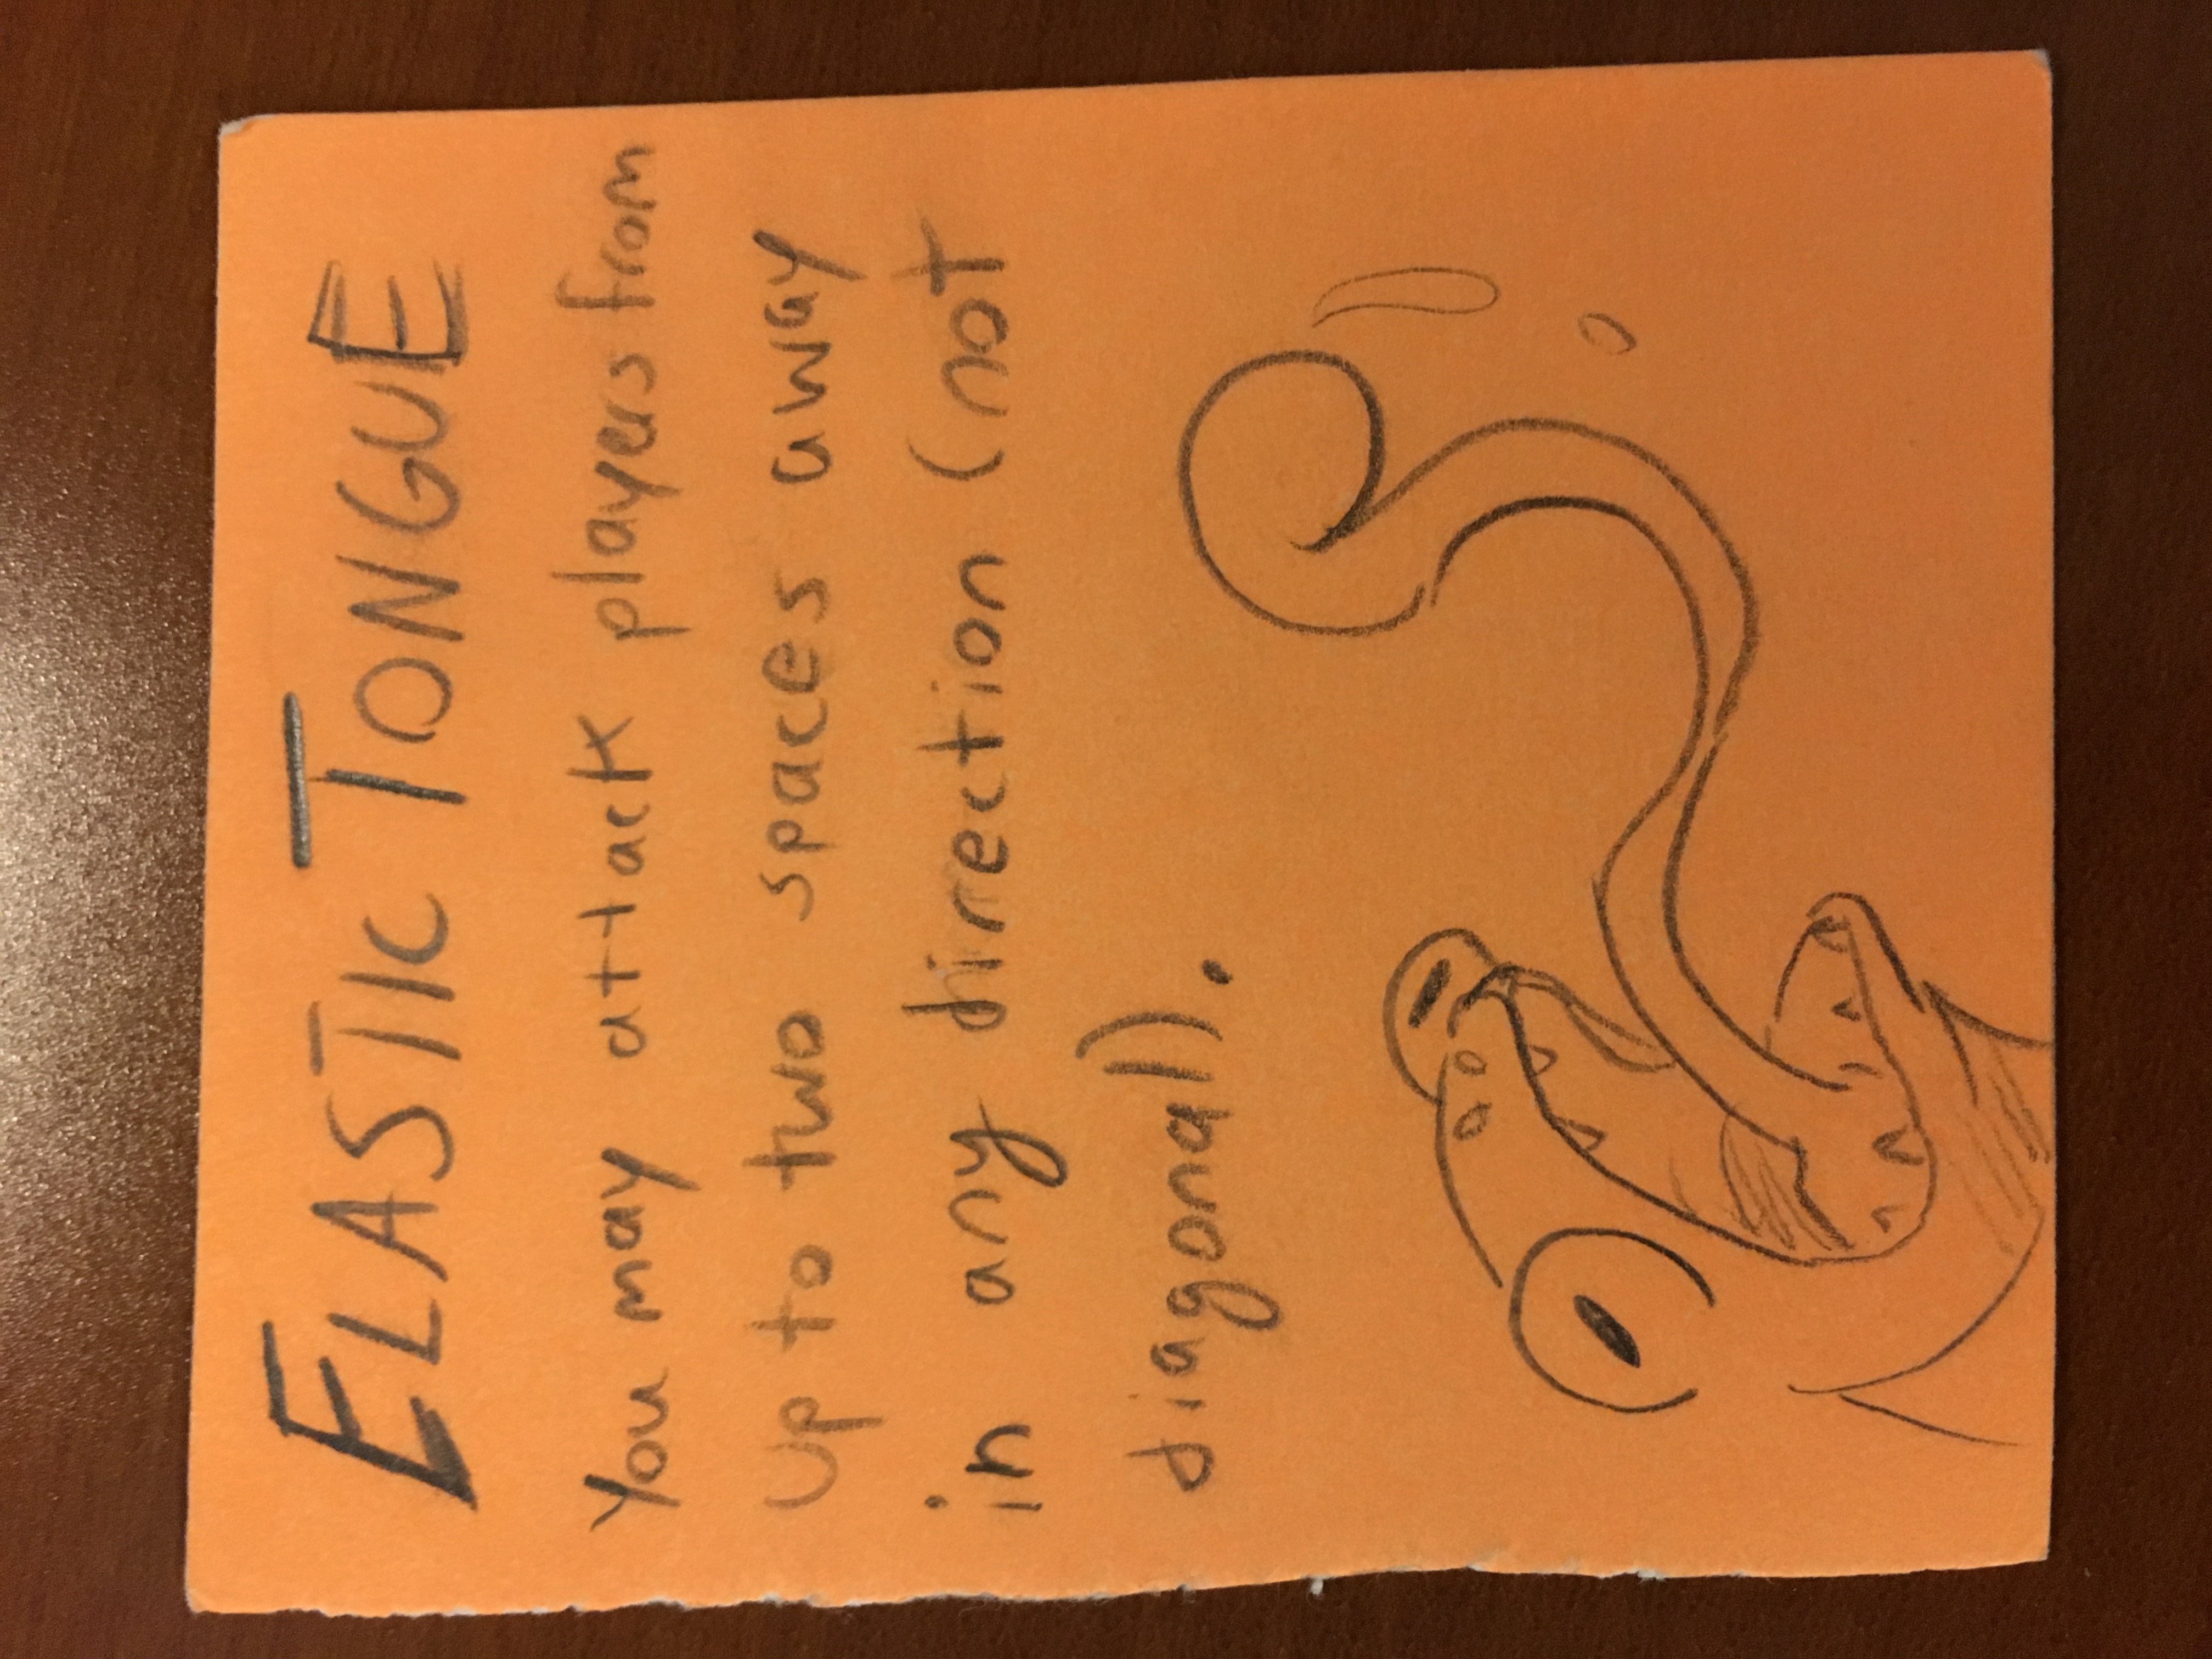 ELASTIC TONGUE
You may attack players from
up to two spaces away
in any direction (not
diagonal).